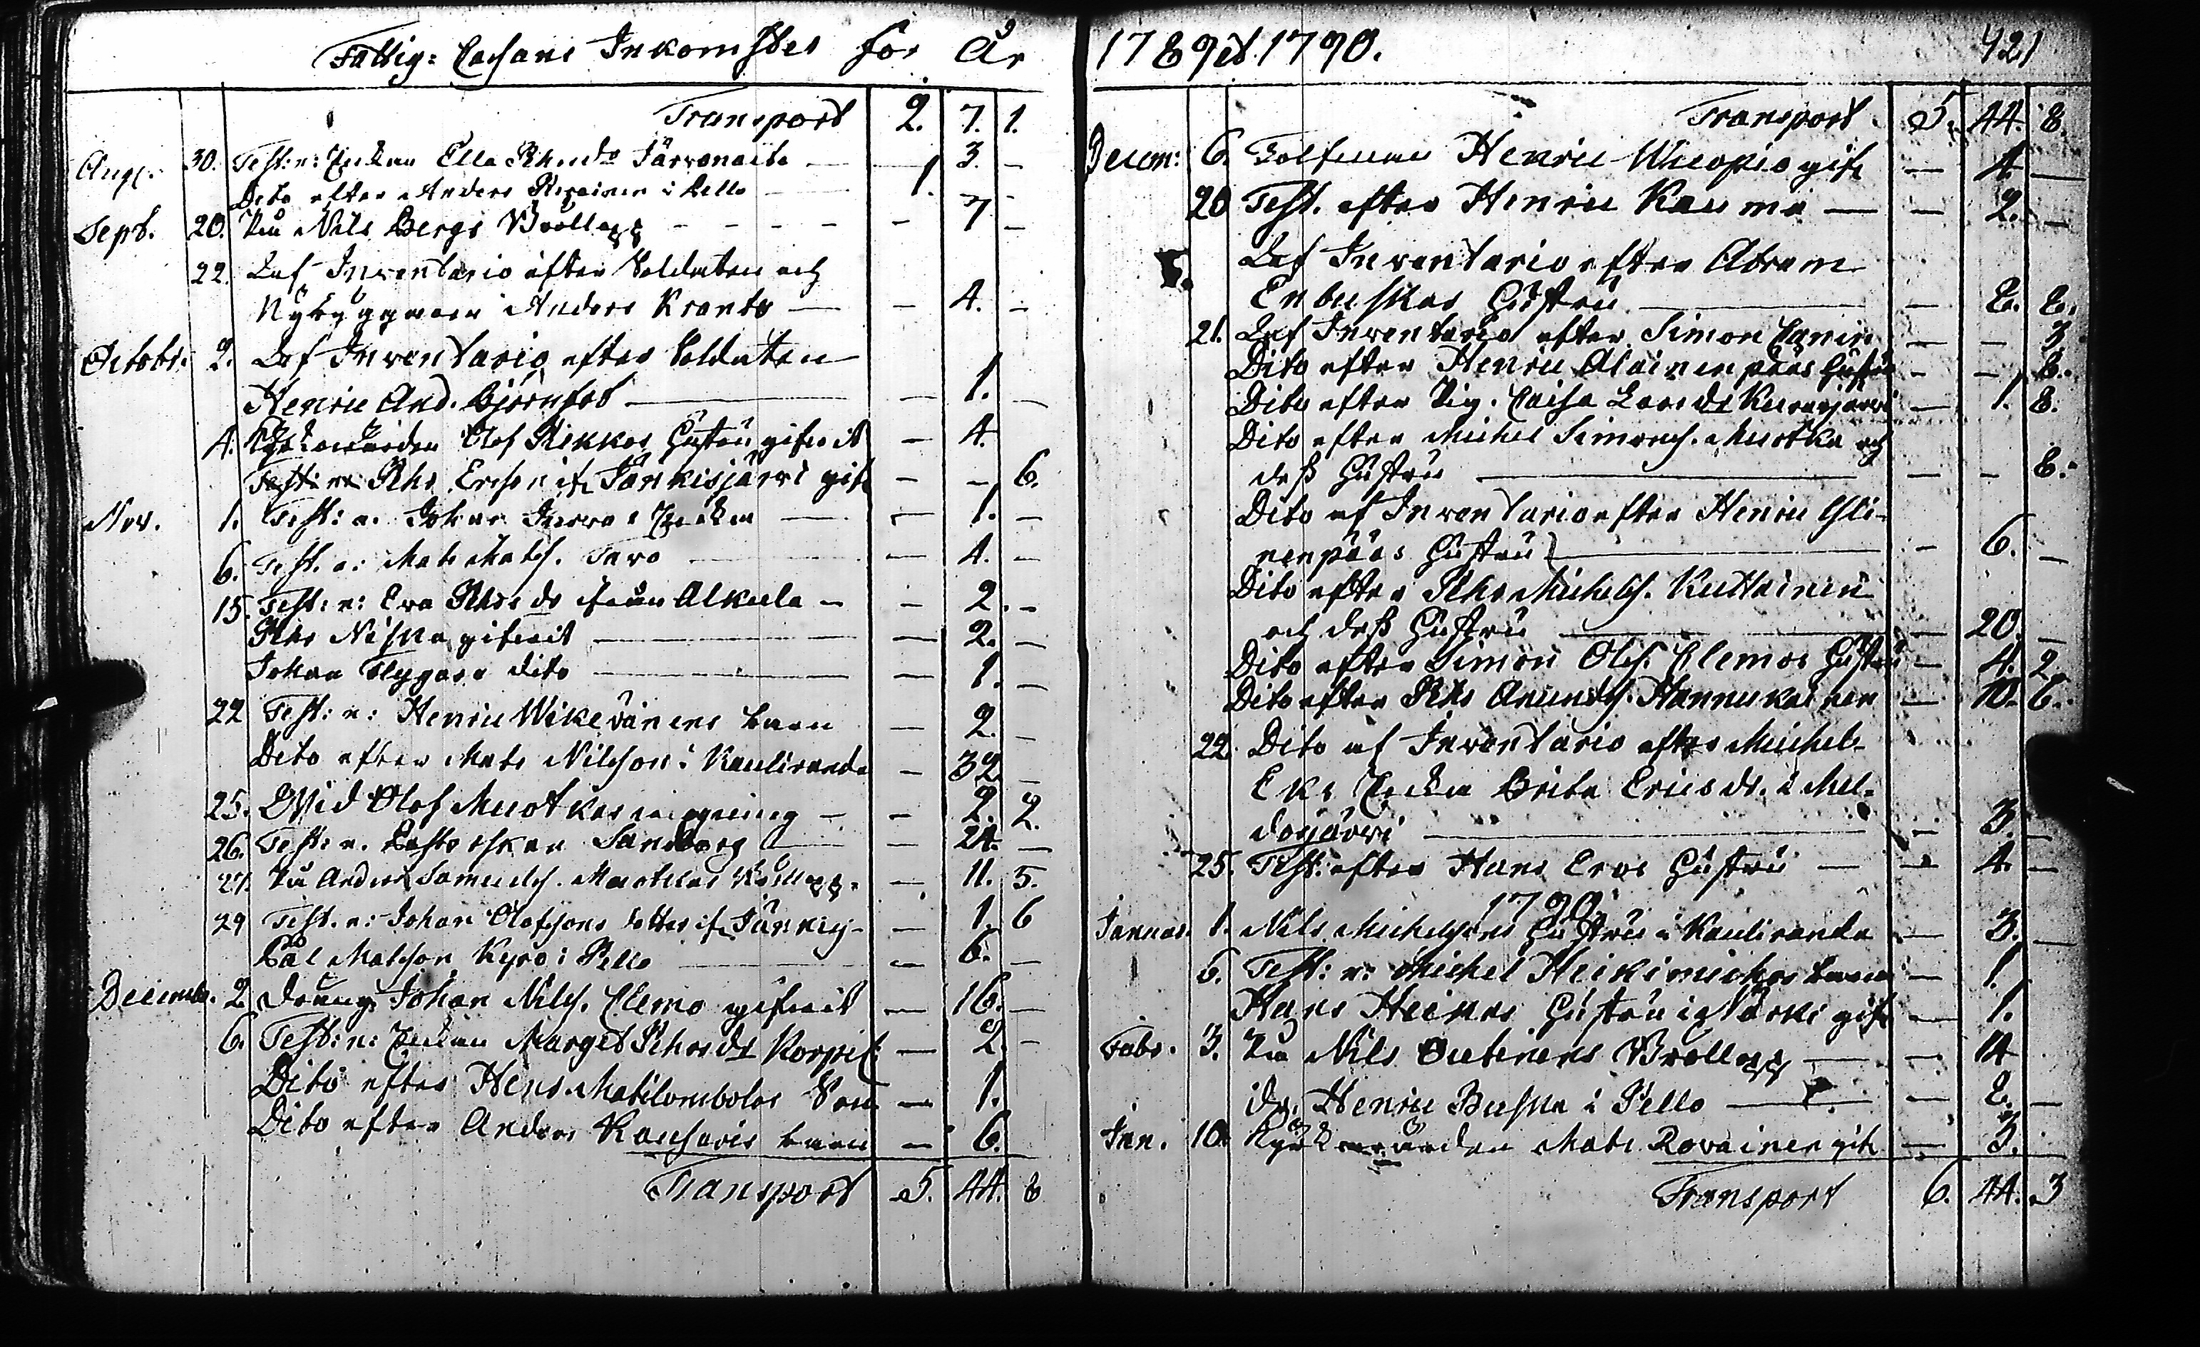 Fattig: Cassans Inkomster för År
Transport 2. 7. 1.
Aug. 30. Test: n: Enkan Ella Phrsdr Järvonaita — 3. —
Dito efter Anders Rovainen i Pello — 1. — —
Sept. 20. Nils Bergs Bröllopp — 7 —
22. Af Inventario efter Soldaten och
Nybyggaren Anders Krants — — 4. —
Octobr. 2. Af Inventario efter Soldaten
Henric And. Björnfot — — 1. —
4. Olof Rekkos Hustru gifvit — 4.
Test: n: Phr Ersson if. Jänkisjärvi gif. — — 6.
Nov. 1. Test: n. Johan Enkan — — 1. —
6. Test. n: Mats Mats. Taro — 4. —
15. Test: n: Eva Phrs dr ifrån Alkula — — 2. —
Phr Niska gifvit — — 2. —
Johan Flygare dito — — 1. —
22 Test: n: Henric Wikevänens barn — 2. —
Dito efter Mats Nilsson i Kauliranda — 32. —
25. Vid Olof Muotkas vigning — — 2. 2.
26. Test: n. Sandberg — 24. —
27. Anders Samuels. Muotkas Bröllopp. — 11. 5.
29 Test. n: Johan Olofssons dotter if. Jänkisj. — 1. 6
Pål Matsson Kyrö i Pello — 6. —
Decembr. 2 Dräng. Johan Nils. Clemo gifvit — 16. —
6. Test: n: Enkan Marget Phrsdr Korpik: — 2. —
Dito efter Hens. Matilombolos Son — 1.
Dito efter Anders Kauharis barn — 6.
Transport 5. 44. 8
1789 et 1790. 421
Transport 5. 44. 8.
Decem: 6. Henric Wuopio gif. — 4. —
20 Test. efter Henric Kauma — — 2. —
Af Inventario efter Abram
Enbuskas Hustru — — 8. 8.
21. Af Inventario efter Simon Lanin — — 3
Dito efter Henric Alainenpääs Hustru — — 8.
Dito efter Pig. Caisa Larsdr Kurajärvi — 1. 8.
Dito efter Michel Simons. Muotka och
dess Hustru — — — 8.
Dito af Inventario efter Henric Yli-
nenpääs Hustru — — 6. —
Dito efter Phr Michels. Kuttainen
och dess Hustru — — 20. —
Dito efter Simon Ols. Clemos Hustru — 4. 2
Dito efter Phr Anunds. Hannukainen — 10. 6.
22. Dito af Inventario efter Michel
Eks Enka Brita Ericsdr. i Mel-
dosjärvi — — 3. —
25. Test: efter Hans Eros Hustru — — 4. —
1790
Januar. 1. Nils Michelssons Hustru i Kauliranda — 3. —
6. Test: n: Michel Heikimickos barn — 1.
Hans Heinos Hustru i Närki gif. — 1.
Febr. 3. Nils Outinens Bröllopp — — 14
do. Henric Buska i Pello — — 2. —
Jan. 10. Mats Rovainen gif. — 3.
Transport 6. 44. 3